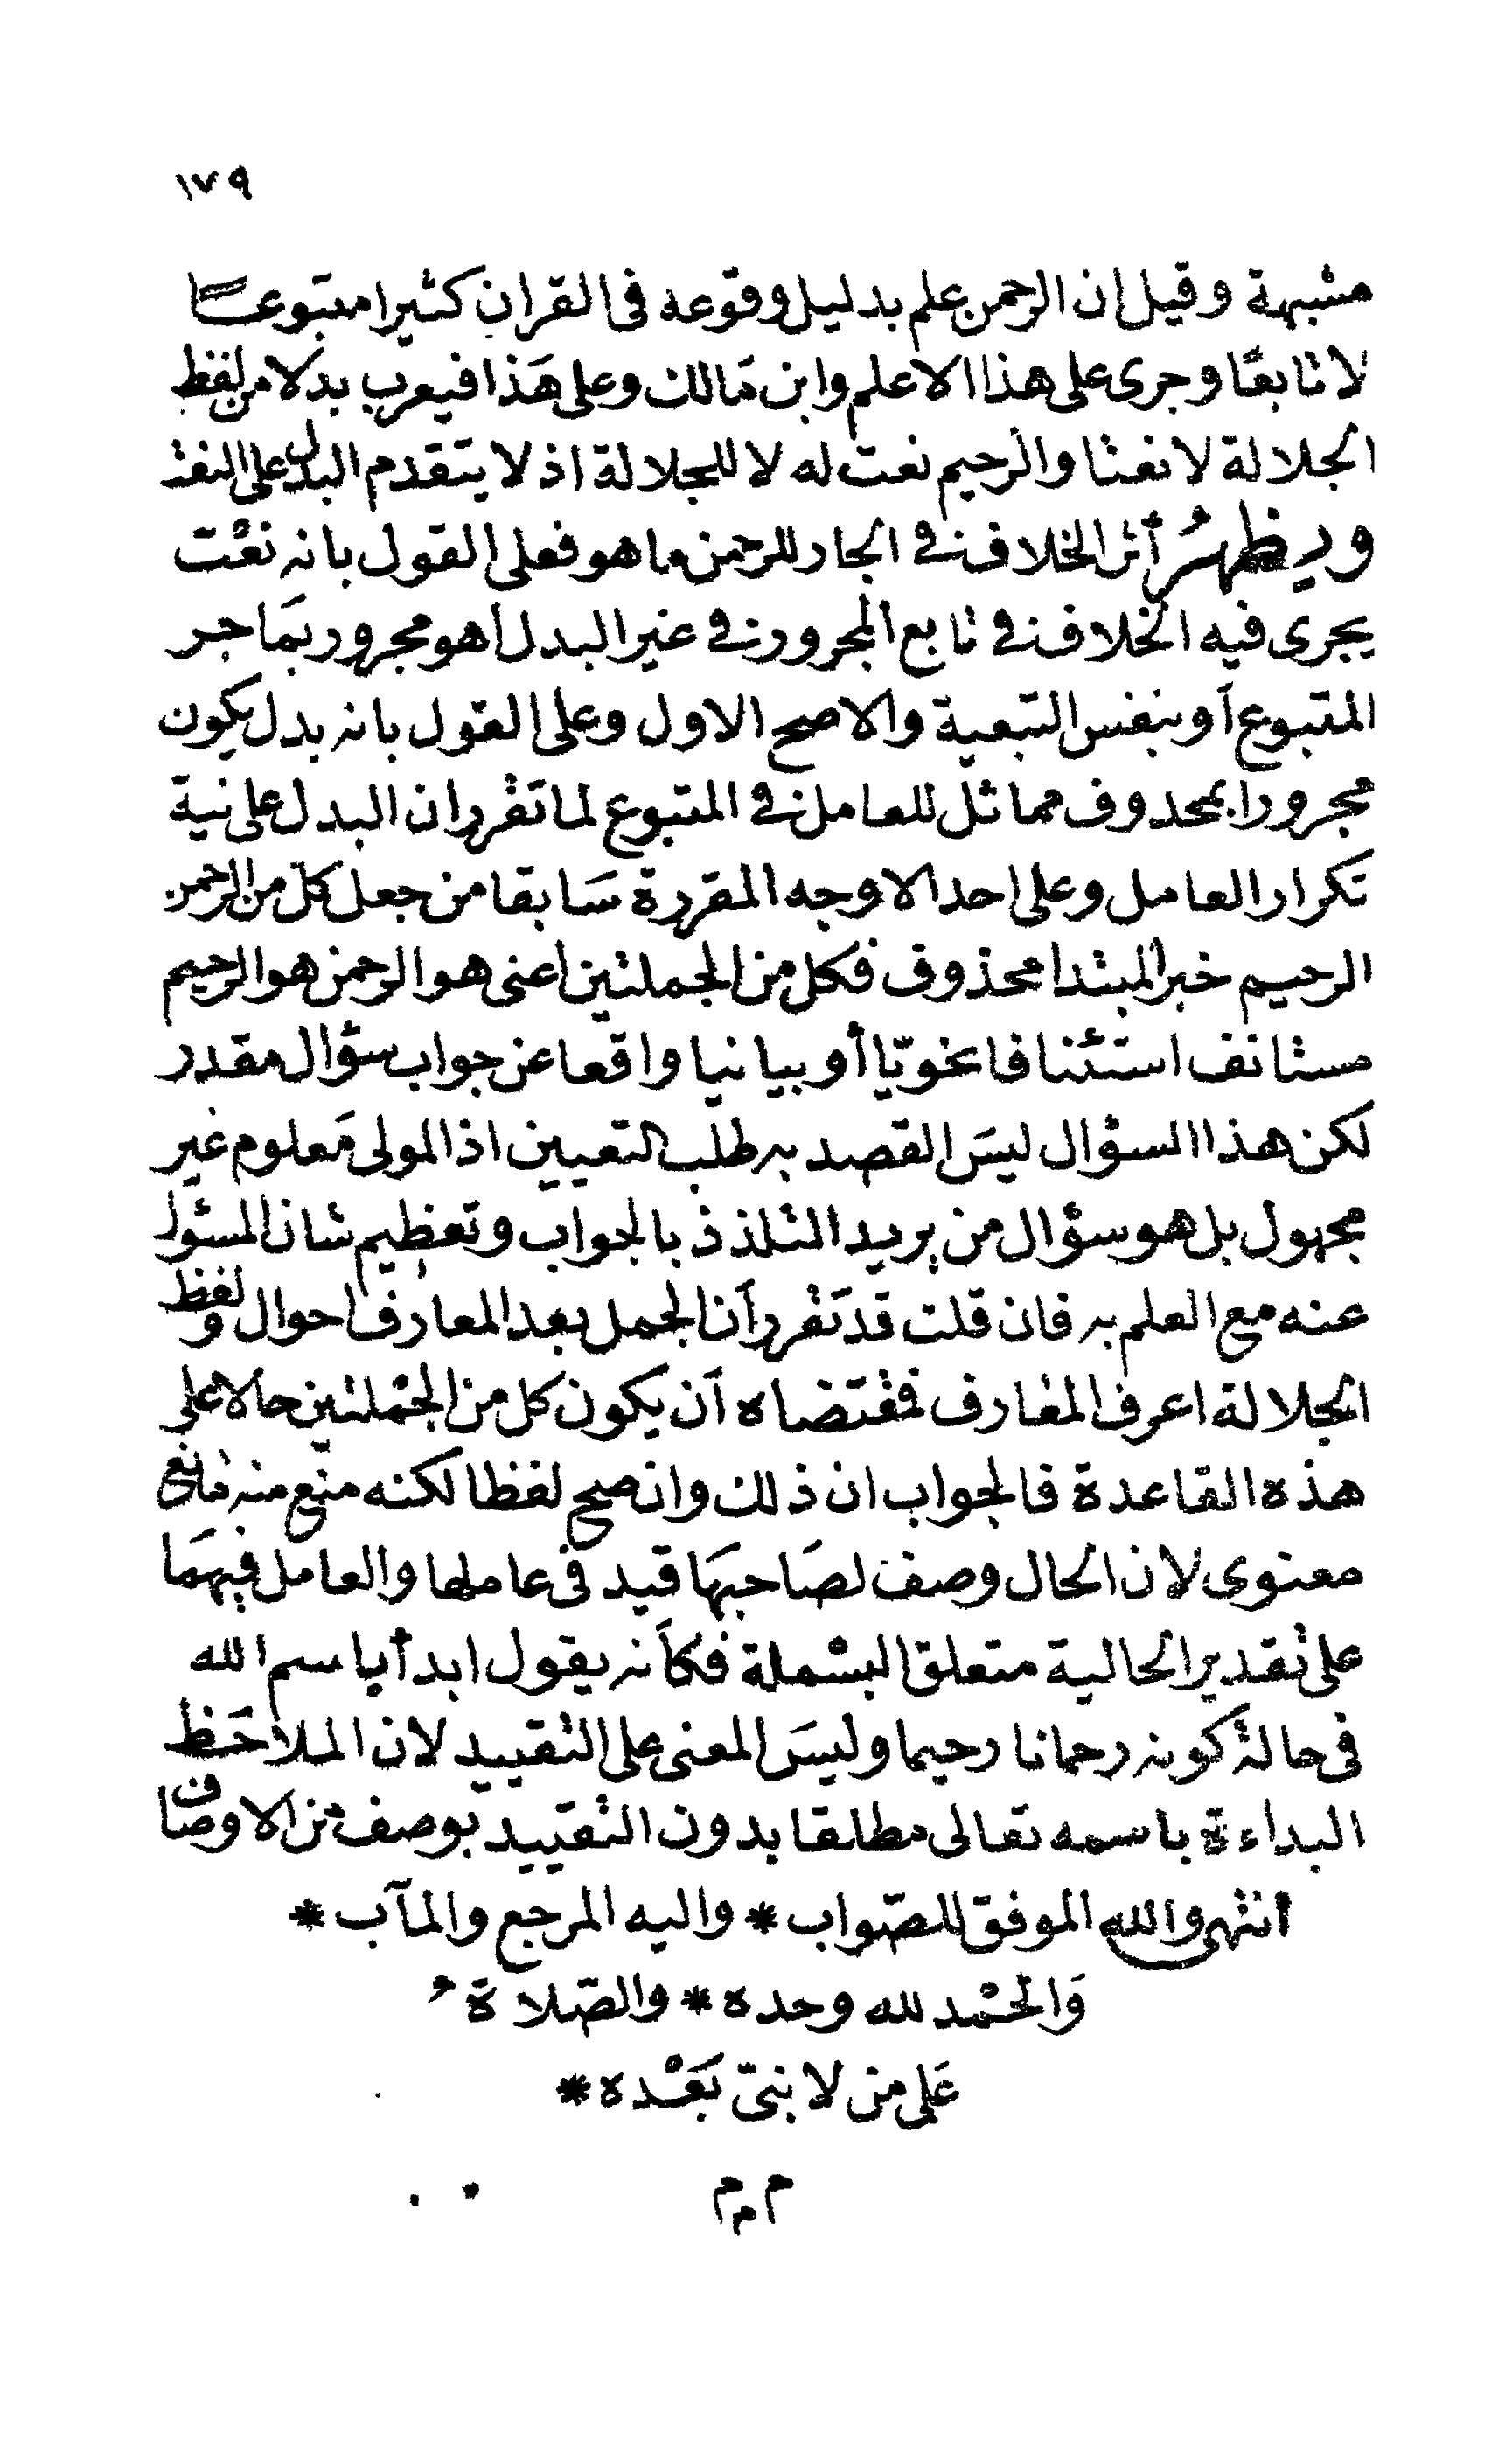 ١٧٩
مشبهة وقيل ان الرحمن علم بدليل وقوعه فى القران كثيرا متبوعًا
لا تابعًا وجرى على هذا الاعلم وابن مَالك وعلى هَذا فيعرب بدلا من لفظ
الجلالة لا نعتا والرحيم نعت له لا للجلالة اذ لا يتقدم البدل على النعت
ويظهرُ أثر الخلاف فى الجار للرحمن ما هو فعلى القول بانه نعْت
يجرى فيه الخلاف فى تابع المجرور فى غير البدل أهو مجرور بمَا جر
المتبوع أو بنفس التبعية والاصح الاول وعلى القول بانه بدل يكون
مجرورا بمحذوف مماثل للعامل فى المتبوع لما تقرر ان البدل على نية
تَكرار العامل وعلى احد الاوجه المقررة سَابقا من جعل كل من الرحمن
الرحيم خبر المبتدا محذوف فكل من الجملتين اعنى هو الرحمن هو الرحيم
مستانف استئنافا نحويّا أو بيانيا واقعا عن جواب سؤال مقدر
لكن هذا السؤال ليسَ القصد به طلب التعيين اذ المولى مَعلوم غير
مجهول بل هو سؤال من يريد التلذذ بالجواب وتعظيم شان المسئول
عنه مع العلم به فان قلت قد تَقرر أن الجمل بعد المعارف احوال ولفظ
الجلالة اعرف المعَارف فمقتضاه أن يكون كل من الجمْلتين حالا على
هذه القاعدة فالجواب ان ذلك وان صح لفظا لكنه منع منه مَانع
معنوى لان الحال وصف لصَاحبهَا قيد فى عاملها والعامل فيهمَا
على تقدير الحالية متعلق البسْملة فكأنه يقول ابدأ باسم الله
فى حالة كونه رحمانا رحيما وليسَ المعنى على التقييد لان الملاحَظ
البداءة باسمه تعالى مطلقا بدون التقييد بوصف من الاوصاف
انتهى والله الموفق للصّواب * واليه المرجع والمآب *
وَالحمْد لله وحده * والصّلاة ُ
عَلى من لا نبىّ بَعْده *
م م م